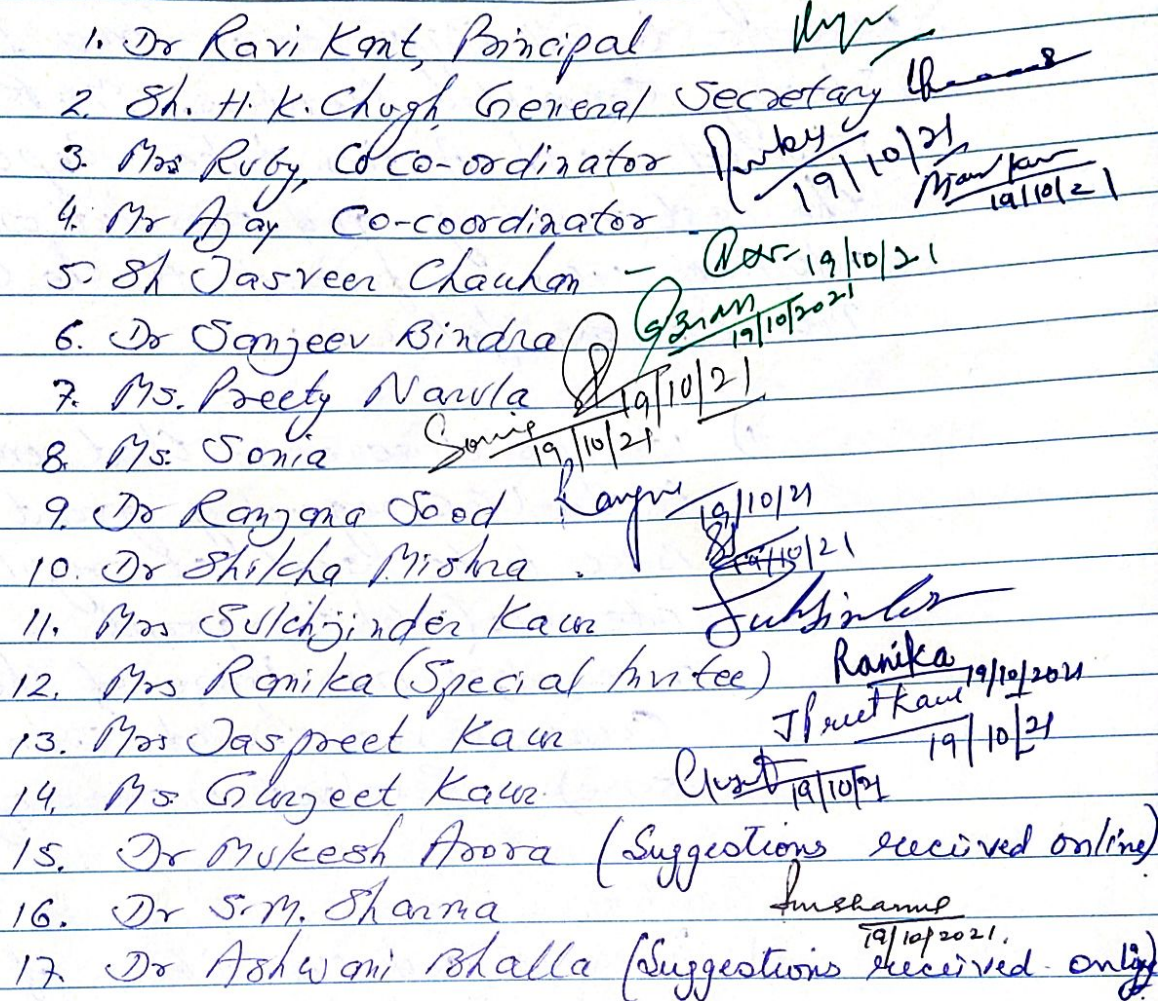 1. Dr Ravi Kant, Principal
2. Sh. H.K. Chugh, General Secretary
3. Mrs Ruby, Co Co-ordinator Ruby 19/10/21
19/10/21
4. Mr Ajay Co-coordinator
5. Sh Jasveer Chauhan - 19/10/21
6. Dr Sanjeev Bindra 19/10/2021
7. Ms. Preety Narula 19/10/21
8. Ms. Sonia Sonia 19/10/21
9. Dr Ranjana Sood 19/10/21
10. Dr Shikha Mishra 19/10/21
11. Mrs Sukhjinder Kaur
12. Mrs Ranika (Special Invitee) Ranika 19/10/2021
13. Mrs Jaspreet Kaur JPreet Kaur 19/10/21
14. Ms Gurjeet Kaur 19/10/21
15. Dr Mukesh Arora (Suggestions received online)
16. Dr S.M. Sharma Smsharma 19/10/2021.
17. Dr Ashwani Bhalla (Suggestions received online)